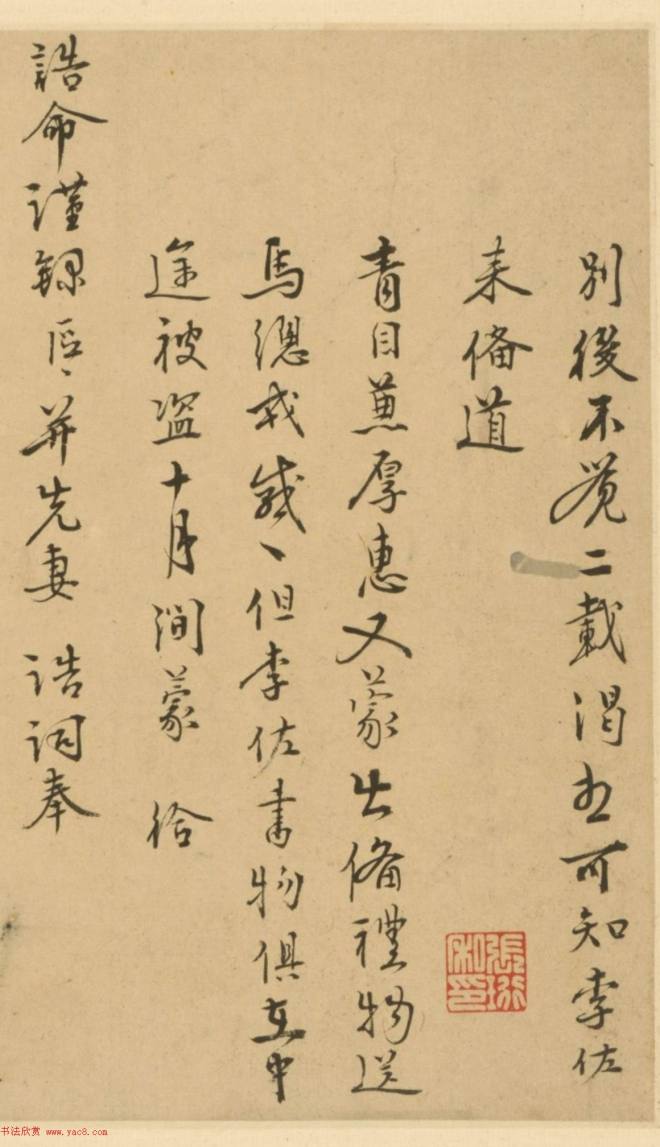 別後不覺二載渴想可知李佐
来備道
青目兼厚惠又蒙出備禮物送
馬總戎感〻但李佐書物俱在中
途被盗十月間蒙 給
誥命謹錄區〻并先妻 誥詞奉
書法欣赏 www.yac8.com